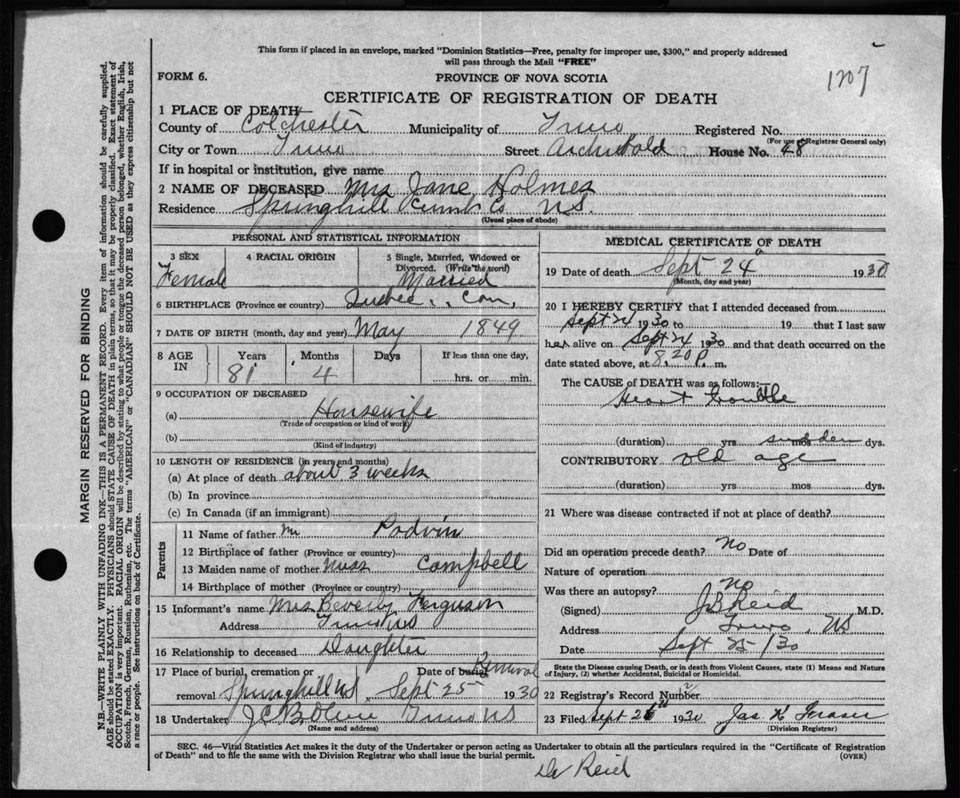 This form if placed in an envelope, marked "Dominion Statistics—Free, penalty for improper use, $300," and properly addressed
will pass through the Mail "FREE"
1207
FORM 6.
PROVINCE OF NOVA SCOTIA
CERTIFICATE OF REGISTRATION OF DEATH
1 PLACE OF DEATH
County of Colchester Municipality of Truro Registered No.
(For use of Registrar General only)
City or Town Truro Street Archibald House No. 48
If in hospital or institution, give name
2 NAME OF DECEASED Mrs Jane Holmes
Residence Springhill Cumb Co NS.
(Usual place of abode)
PERSONAL AND STATISTICAL INFORMATION
3 SEX Female
4 RACIAL ORIGIN
5 Single, Married, Widowed or Divorced. (Write the word) Married
6 BIRTHPLACE (Province or country) Quebec, Can.
7 DATE OF BIRTH (month, day and year) May 1849
8 AGE IN Years 81 Months 4 Days If less than one day, hrs. or min.
9 OCCUPATION OF DECEASED
(a) Housewife
(Trade of occupation or kind of work)
(b)
(Kind of industry)
10 LENGTH OF RESIDENCE (in years and months)
(a) At place of death about 3 weeks
(b) In province
(c) In Canada (if an immigrant)
Parents
11 Name of father Mr Podvin
12 Birthplace of father (Province or country)
13 Maiden name of mother Miss Campbell
14 Birthplace of mother (Province or country)
15 Informant's name Mrs Beverly Ferguson
Address Truro NS
16 Relationship to deceased Daughter
17 Place of burial, cremation or removal Springhill NS Date of burial Removal Sept 25 1930
18 Undertaker Truro NS
(Name and address)
MEDICAL CERTIFICATE OF DEATH
19 Date of death Sept 24 1930
(Month, day and year)
20 I HEREBY CERTIFY that I attended deceased from
Sept 24 1930 to 19 that I last saw
her alive on Sept 24 1930 and that death occurred on the
date stated above, at 8.20 P. m.
The CAUSE OF DEATH was as follows:—
Heart trouble
(duration) yrs mos sudden dys.
CONTRIBUTORY old age
(duration) yrs. mos dys.
21 Where was disease contracted if not at place of death?
Did an operation precede death? No Date of
Nature of operation
Was there an autopsy? No
(Signed) J B Reid M.D.
Address Truro, NS
Date Sept 25/30
State the Disease causing Death, or in death from Violent Causes, state (1) Means and Nature
of Injury, (2) whether Accidental, Suicidal or Homicidal.
22 Registrar's Record Number
23 Filed Sept 26th 1930 Jas K Fraser
(Division Registrar)
SEC. 46—Vital Statistics Act makes it the duty of the Undertaker or person acting as Undertaker to obtain all the particulars required in the "Certificate of Registration
of Death" and to file the same with the Division Registrar who shall issue the burial permit. (OVER)
Dr Reid
MARGIN RESERVED FOR BINDING
N.B.—WRITE PLAINLY WITH UNFADING INK—THIS IS A PERMANENT RECORD. Every item of information should be carefully supplied.
AGE should be stated EXACTLY. PHYSICIANS should STATE CAUSE OF DEATH in plain terms, so that it may be properly classified. Exact statement of
OCCUPATION is very important. RACIAL ORIGIN will be described by stating to what people or tongue the deceased person belonged, whether English, Irish,
Scotch, French, German, Russian, Ruthenian, etc. The terms "AMERICAN" or "CANADIAN" SHOULD NOT BE USED as they express citizenship but not
a race or people. See instructions on back of Certificate.